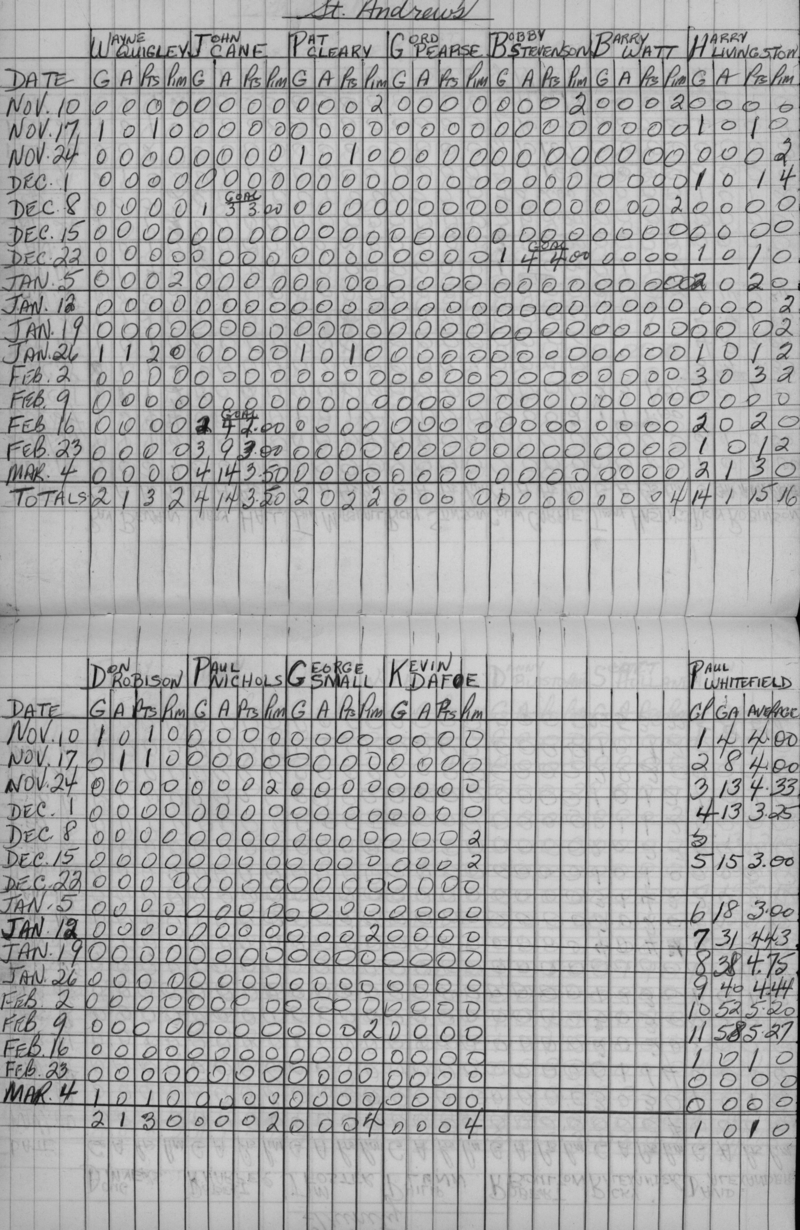 St. Andrews
WAYNE QUIGLEY JOHN CANE PAT CLEARY GORD PEARSE BOBBY STEVENSON BARRY WATT HARRY LIVINGSTON
DATE G A Pts Pim G A Pts Pim G A Pts Pim G A Pts Pim G A Pts Pim G A Pts Pim G A Pts Pim
NOV. 10 0 0 0 0 0 0 0 0 0 0 0 2 0 0 0 0 0 0 0 2 0 0 0 2 0 0 0 0
NOV. 17 1 0 1 0 0 0 0 0 0 0 0 0 0 0 0 0 0 0 0 0 0 0 0 0 1 0 1 0
NOV. 24 0 0 0 0 0 0 0 0 1 0 1 0 0 0 0 0 0 0 0 0 0 0 0 0 0 0 0 2
DEC. 1 0 0 0 0 0 0 0 0 0 0 0 0 0 0 0 0 0 0 0 0 0 0 0 0 1 0 1 4
DEC. 8 0 0 0 0 1 GOAL 3 3.00 0 0 0 0 0 0 0 0 0 0 0 0 0 0 0 2 0 0 0 0
DEC. 15 0 0 0 0 0 0 0 0 0 0 0 0 0 0 0 0 0 0 0 0 0 0 0 0 0 0 0 0
DEC. 22 0 0 0 0 0 0 0 0 0 0 0 0 0 0 0 0 1 GOAL 4 4.00 0 0 0 0 1 0 1 0
JAN. 5 0 0 0 2 0 0 0 0 0 0 0 0 0 0 0 0 0 0 0 0 0 0 0 0 2 0 2 0
JAN. 12 0 0 0 0 0 0 0 0 0 0 0 0 0 0 0 0 0 0 0 0 0 0 0 0 0 0 0 2
JAN. 19 0 0 0 0 0 0 0 0 0 0 0 0 0 0 0 0 0 0 0 0 0 0 0 0 0 0 0 2
JAN. 26 1 1 2 0 0 0 0 0 1 0 1 0 0 0 0 0 0 0 0 0 0 0 0 0 1 0 1 2
FEB. 2 0 0 0 0 0 0 0 0 0 0 0 0 0 0 0 0 0 0 0 0 0 0 0 0 3 0 3 2
FEB. 9 0 0 0 0 0 0 0 0 0 0 0 0 0 0 0 0 0 0 0 0 0 0 0 0 0 0 0 0
FEB 16 0 0 0 0 2 GOAL 4 2.00 0 0 0 0 0 0 0 0 0 0 0 0 0 0 0 0 2 0 2 0
FEB. 23 0 0 0 0 3 9 3.00 0 0 0 0 0 0 0 0 0 0 0 0 0 0 0 0 1 0 1 2
MAR. 4 0 0 0 0 4 14 3.50 0 0 0 0 0 0 0 0 0 0 0 0 0 0 0 0 2 1 3 0
TOTALS 2 1 3 2 4 14 3.50 2 0 2 2 0 0 0 0 0 0 0 0 0 0 0 4 14 1 15 16
DON ROBISON PAUL NICHOLS GEORGE SMALL KEVIN DAFOE PAUL WHITEFIELD
DATE G A Pts Pim G A Pts Pim G A Pts Pim G A Pts Pim GP GA AVERAGE
NOV. 10 1 0 1 0 0 0 0 0 0 0 0 0 0 0 0 0 1 4 4.00
NOV. 17 0 1 1 0 0 0 0 0 0 0 0 0 0 0 0 0 2 8 4.00
NOV. 24 0 0 0 0 0 0 0 2 0 0 0 0 0 0 0 0 3 13 4.33
DEC. 1 0 0 0 0 0 0 0 0 0 0 0 0 0 0 0 0 4 13 3.25
DEC 8 0 0 0 0 0 0 0 0 0 0 0 0 0 0 0 2
DEC. 15 0 0 0 0 0 0 0 0 0 0 0 0 0 0 0 2 5 15 3.00
DEC. 22 0 0 0 0 0 0 0 0 0 0 0 0 0 0 0 0
JAN. 5 0 0 0 0 0 0 0 0 0 0 0 0 0 0 0 0 6 18 3.00
JAN. 12 0 0 0 0 0 0 0 0 0 0 0 2 0 0 0 0 7 31 4.43
JAN. 19 0 0 0 0 0 0 0 0 0 0 0 0 0 0 0 0 8 38 4.75
JAN. 26 0 0 0 0 0 0 0 0 0 0 0 0 0 0 0 0 9 40 4.44
FEB. 2 0 0 0 0 0 0 0 0 0 0 0 0 0 0 0 0 10 52 5.20
FEB. 9 0 0 0 0 0 0 0 0 0 0 0 2 0 0 0 0 11 58 5.27
FEB. 16 0 0 0 0 0 0 0 0 0 0 0 0 0 0 0 0 1 0 1 0
FEB. 23 0 0 0 0 0 0 0 0 0 0 0 0 0 0 0 0 0 0 0 0
MAR. 4 1 0 1 0 0 0 0 0 0 0 0 0 0 0 0 0 0 0 0 0
2 1 3 0 0 0 0 2 0 0 0 4 0 0 0 4 1 0 1 0